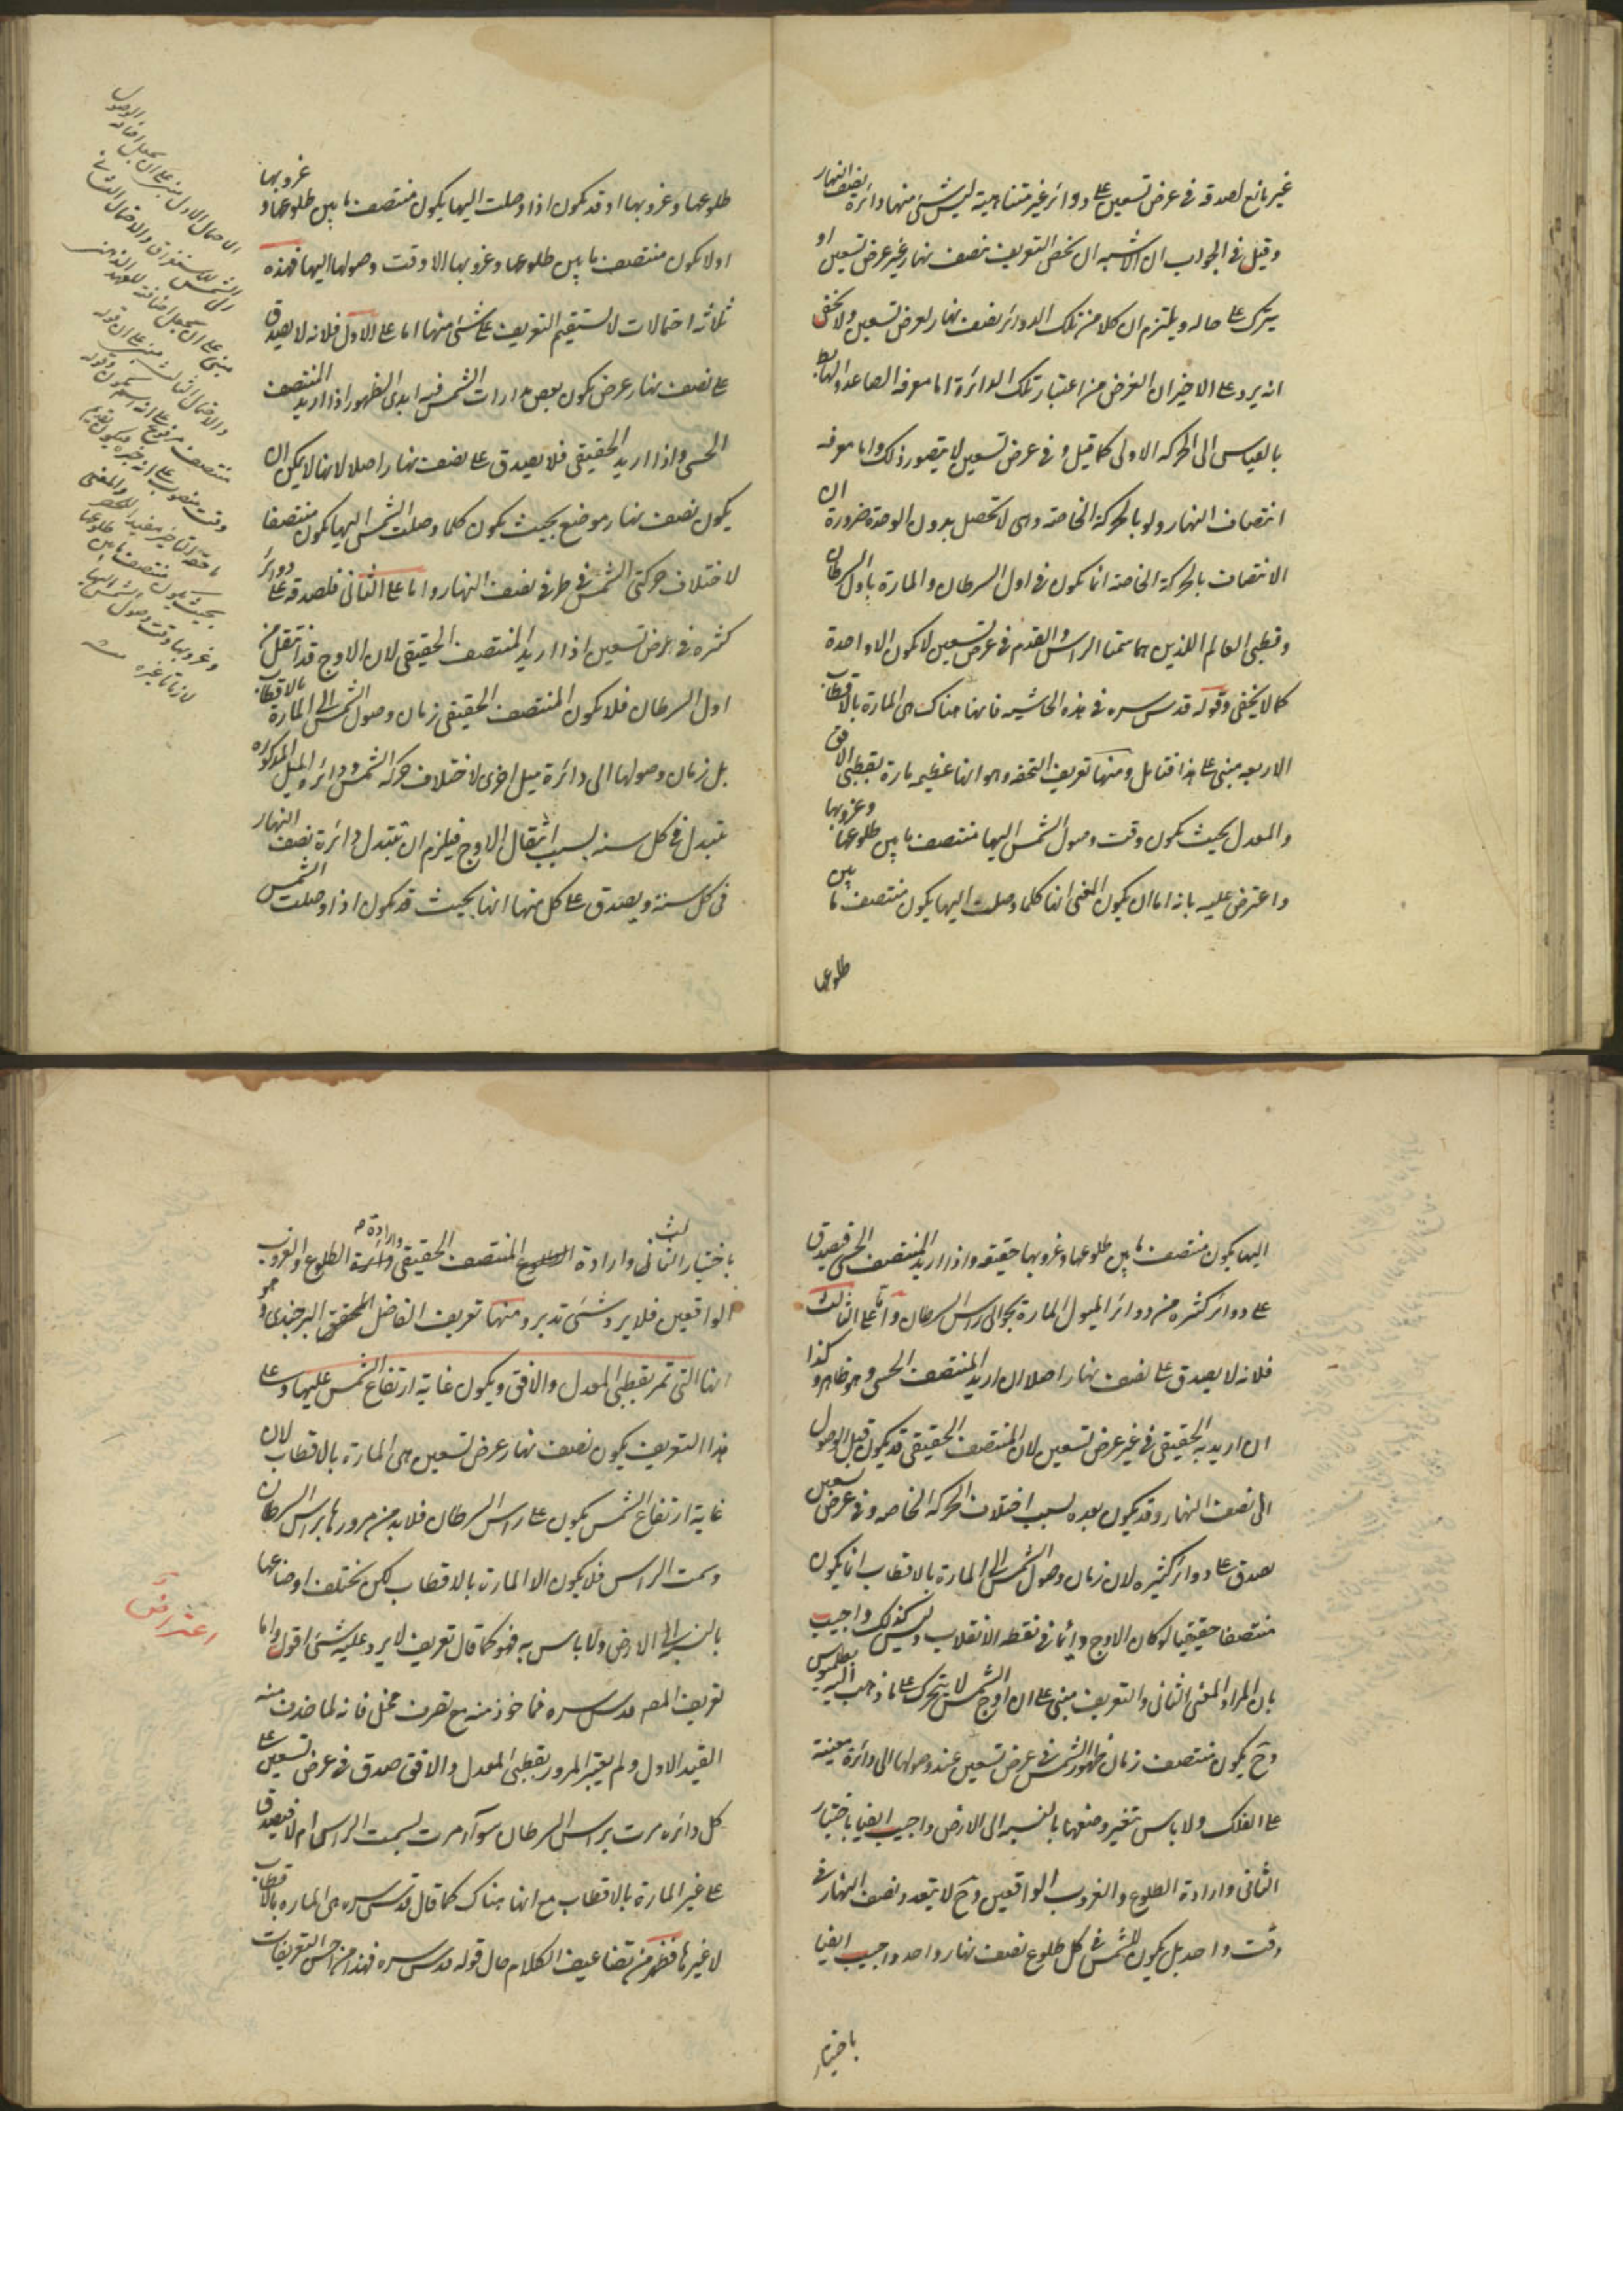 غير مانع لصدقه فى عرض تسعين على دوائر غير متناهية ليس شئ منها دائرة نصف النهار
وقيل فى الجواب ان الاشبه ان يخص التعريف بنصف نهار غير عرض تسعين او
يترك على حاله ويلتزم ان كلا من تلك الدوائر نصف نهار لعرض تسعين ولا يخفى
انه يرد على الاخير ان الغرض من اعتبار تلك الدائرة اما معرفه الصاعد والهابط
بالقياس الى الحركه الاولى كما قيل وفى عرض تسعين لا يتصور ذلك واما معرفه
انتصاف النهار ولو بالحركة الخاصه وهى لا تحصل بدون الوحدة ضرورة ان
الانتصاف بالحركة الخاصه انما يكون فى اول السرطان والمارة باول السرطان
وقطبى العالم اللذين هما سمتا الراس والقدم فى عرض تسعين لا تكون الا واحدة
كما لا يخفى وقوله قدس سره فى هذه الحاشيه فانها هناك هى المارة بالاقطاب
الاربعه مبنى على هذا فتامل ومنها تعريف التحفه وهو انها عظيمه مارة بقطبى الافق
والمعدل بحيث يكون وقت وصول الشمس اليها منتصف ما بين طلوعها وغروبها
واعترض عليه بانه اما ان يكون المعنى انها كلما وصلت اليها يكون منتصف ما بين
طلوعها
طلوعها وغروبها او قد يكون اذا وصلت اليها يكون منتصف ما بين طلوعها و غروبها
او لا يكون منتصف ما بين طلوعها وغروبها الا وقت وصولها اليها فهذه
ثلثة احتمالات لا يستقيم التعريف على شئ منها اما على الاول فلانه لا يصدق
على نصف نهار عرض يكون بعض مدارات الشمس فيه ابدى الظهور اذا اريد المنتصف
الحسى واذا اريد الحقيقى فلا يصدق على نصف نهار اصلا لانها لا يمكن ان
يكون نصف نهار موضع بحيث يكون كلما وصلت الشمس اليها يكون منتصفا
لاختلاف حركتى الشمس فى طرفى نصف النهار واما على الثانى فلصدقه على دوائر
كثيره فى عرض تسعين اذا اريد المنتصف الحقيقى لان الاوج قد انتقل من
اول السرطان فلا يكون المنتصف الحقيقى زمان وصول الشمس الى المارة بالاقطاب
بل زمان وصولها الى دائرة ميل اخرى لاختلاف حركه الشمس ودائره الميل المذكوره
تتبدل فى كل سنه بسبب انتقال الاوج فيلزم ان تتبدل دائرة نصف النهار
فى كل سنة ويصدق على كل منها انها بحيث قد يكون اذا وصلت الشمس
الاحتمال الاول مبنى على ان يجعل اضافة الوصول
الى الشمس للاستغراق والاحتمال الثانى
مبنى على ان يجعل اضافته للعهد الذهنى
والاحتمال الثالث مبنى على ان قوله
منتصف مرفوع على انه اسم يكون وقوله
وقت منصوب على انه خبره ويكون تقديم
ما حقه التاخير مفيد الحصر والمعنى
بحيث يكون منتصف ما بين طلوعها
وغروبها وقت وصول الشمس اليها
لا زمانا غيره
اليها يكون منتصف ما بين طلوعها وغروبها حقيقه واذا اريد المنتصف الحسى فيصدق
على دوائر كثيره من دوائر الميول المارة بحوالى راس السرطان واما على الثالث
فلانه لا يصدق على نصف نهار اصلا ان اريد المنتصف الحسى وهو ظاهر وكذا
ان اريد به الحقيقى فى غير عرض تسعين لان المنتصف الحقيقى قد يكون قبل الوصول
الى نصف النهار وقد يكون بعده بسبب اختلاف الحركه الخاصه وفى عرض تسعين
يصدق على دوائر كثيره لان زمان وصول الشمس الى المارة بالاقطاب انما يكون
منتصفا حقيقيا لو كان الاوج دائما فى نقطه الانقلاب وليس كذلك واجيب
بان المراد المعنى الثانى والتعريف مبنى على ان اوج الشمس لا يتحرك على ما ذهب اليه بطلميوس
وح يكون منتصف زمان ظهور الشمس فى عرض تسعين عند وصولها الى دائرة معينة
على الفلك ولا باس بتغير وضعها بالنسبه الى الارض واجيب ايضا باختيار
الثانى وارادة الطلوع والغروب الواقعين وح لا يتعدد نصف النهار فى
وقت واحد بل يكون للشمس فى كل طلوع نصف نهار واحد واجيب ايضا
باختيار
باختيار الثالث وارادة المنتصف الحقيقى وارادة الطلوع والغروب
الواقعين فلا يرد شئ تدبر ومنها تعريف الفاضل المحقق البرجندى وهو
انها التى تمر بقطبى المعدل والافق ويكون غاية ارتفاع الشمس عليها وعلى
هذا التعريف يكون نصف نهار عرض تسعين هى المارة بالاقطاب لان
غاية ارتفاع الشمس يكون على راس السرطان فلا بد من مرورها براس السرطان
وسمت الراس فلا يكون الا المارة بالاقطاب لكن يختلف اوضاعها
بالنسبه الى الارض ولا باس به فهو كما قال تعريف لا يرد عليه شئ اقول واما
تعريف المصـ قدس سره فماخوذ منه مع تصرف مخل فانه لما حذف منه
القيد الاول ولم يعتبر المرور بقطبى المعدل والافق صدق فى عرض تسعين على
كل دائره مرت براس السرطان سواء مرت بسمت الراس ام لا فيصدق
على غير المارة بالاقطاب مع انها هناك كما قال قدس سره هى الماره بالاقطاب
لا غيرها فظهر من تضاعيف الكلام حال قوله قدس سره فهذا من احسن التعريفات
اعتراض